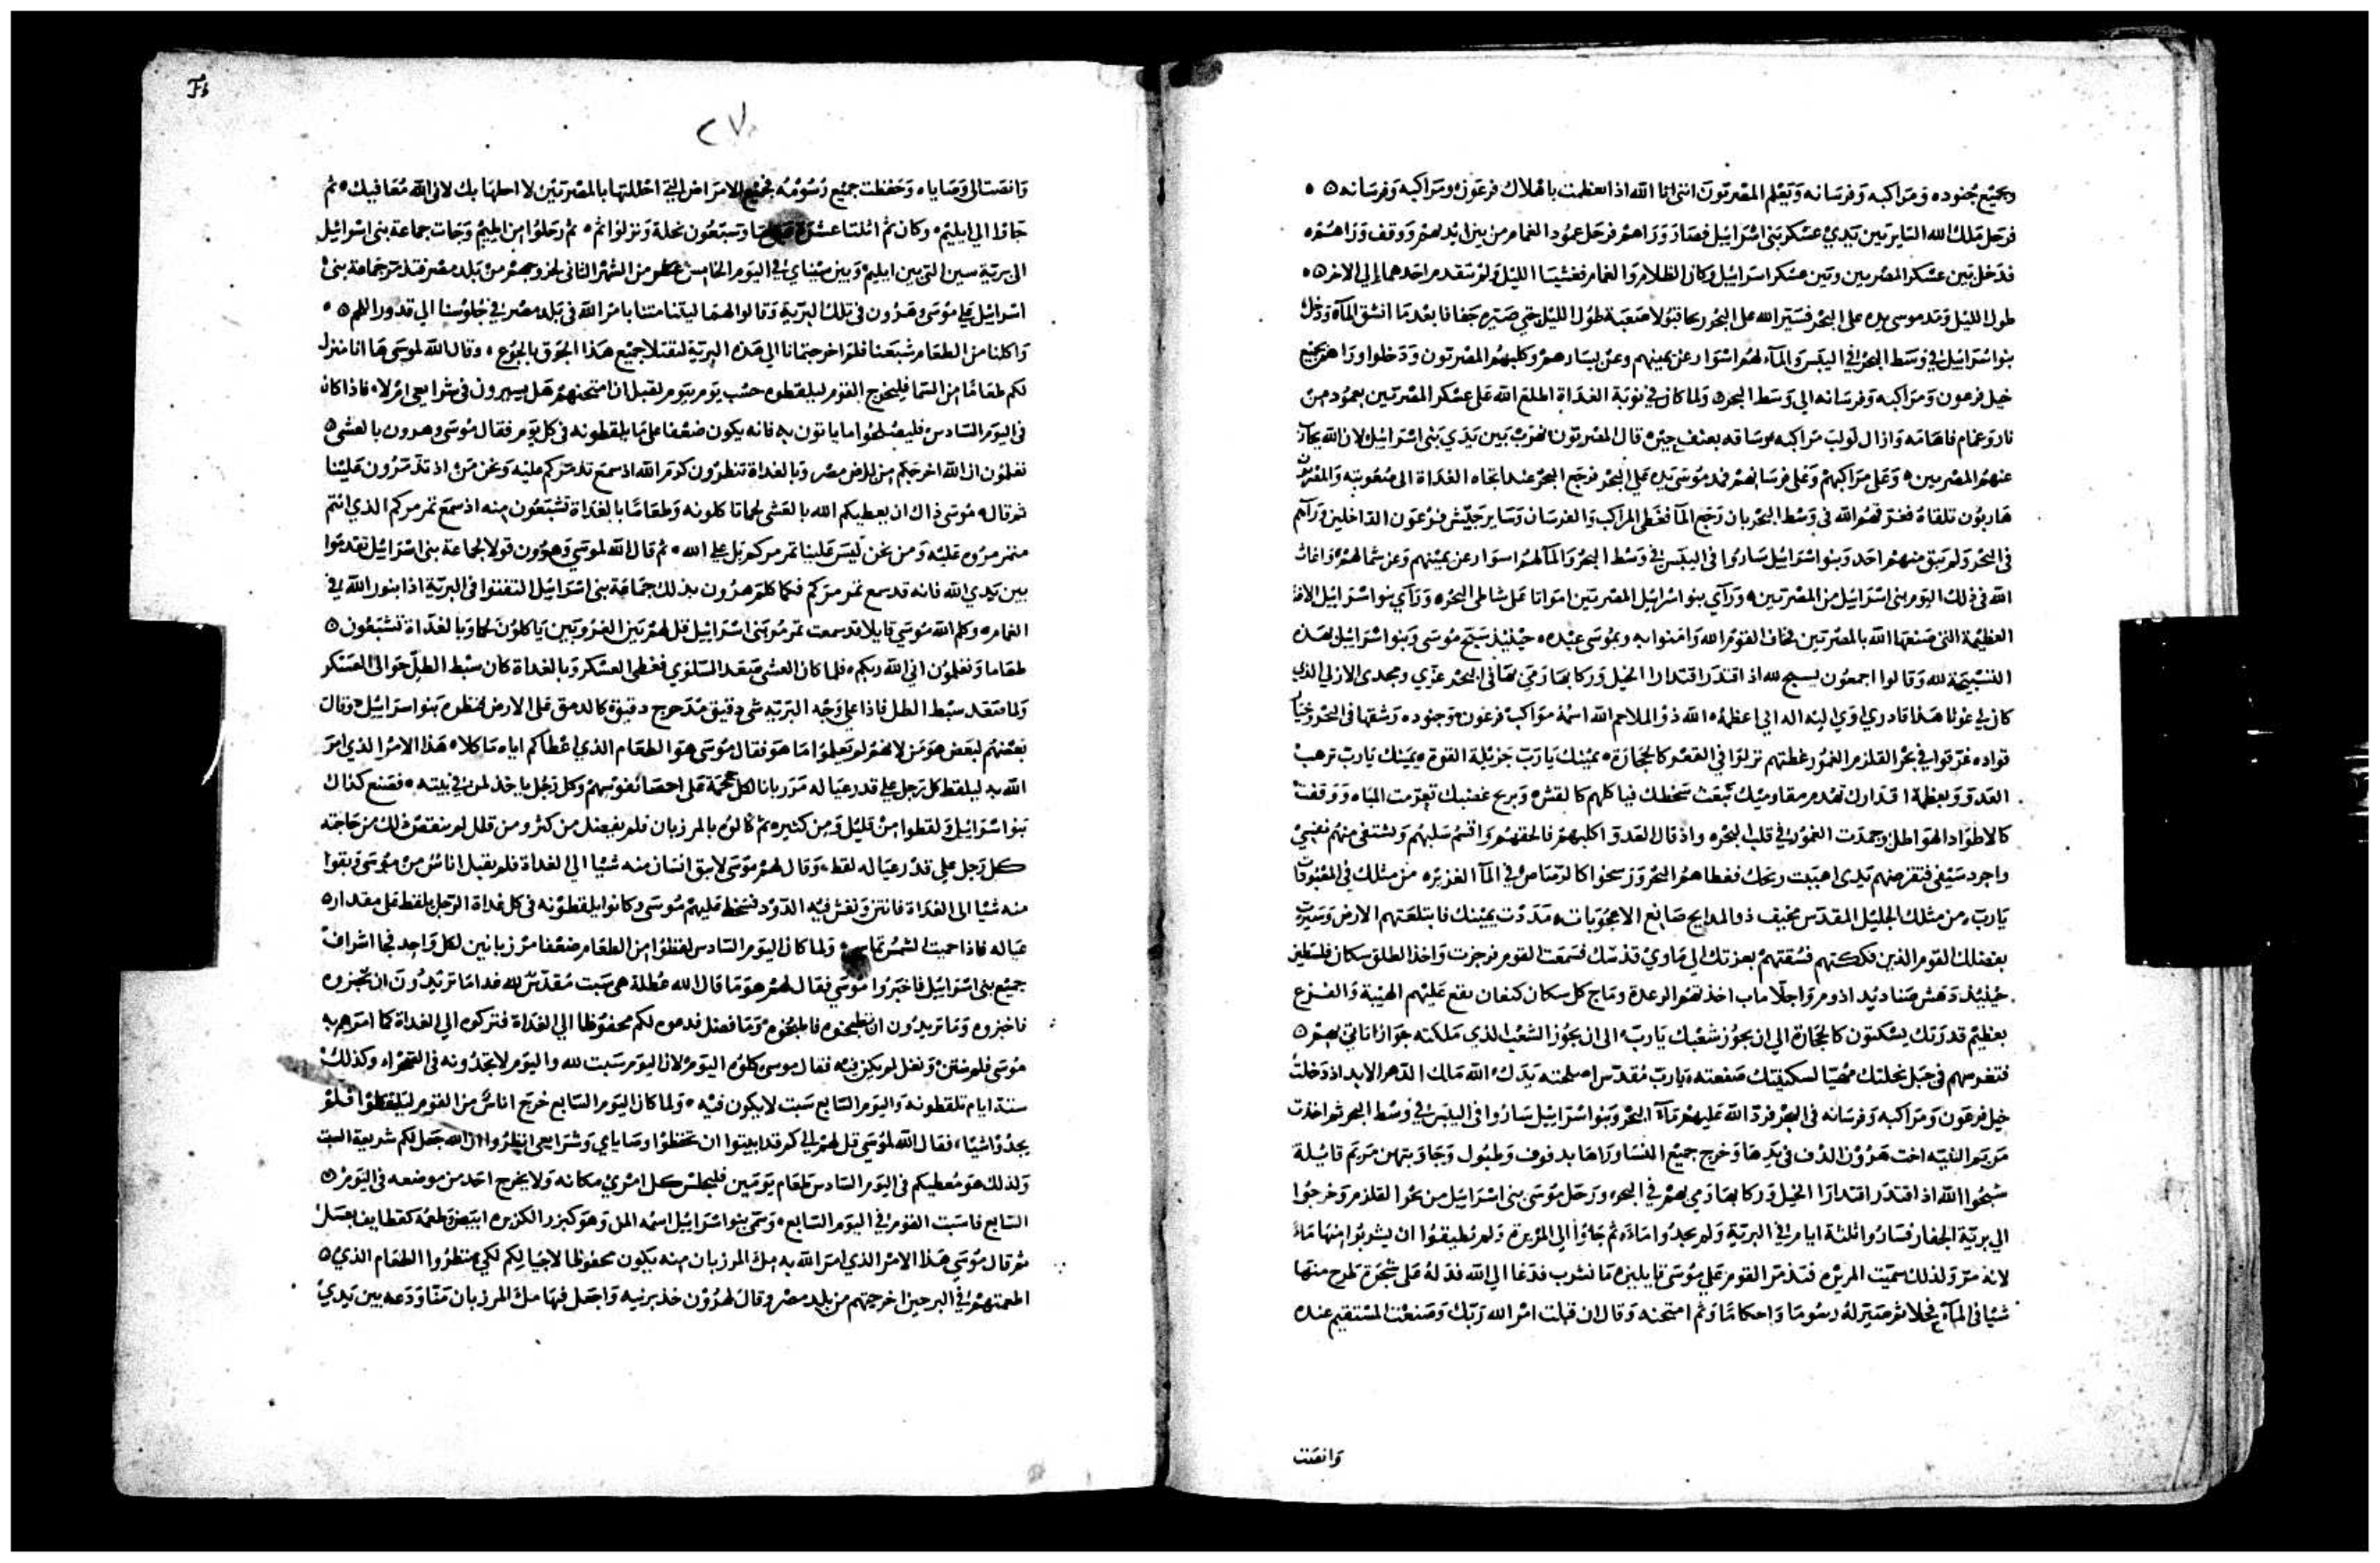 وبجميع جنوده ومراكبه وفرسانه ويعلم المصريون انني انا الله اذا تعظمت باهلاك فرعون ومراكبه وفرسانه
فرحل ملك الله الساير بين يدي عسكر بني اسرائيل فصار وراهم فرحل عمود الغمام من بين ايديهم ووقف وراهم
فدخل بين عسكر المصريين وبين عسكر اسرائيل وكان الظلام والغمام فغشيا الليل ولم يتقدم احدهما الي الاخر
طول الليل ومد موسى يده على البحر فسير الله على البحر ريحا قبولا صعبة طول الليل حتي صيره جفافا بعد ما انشق المآء ودخل
بنو اسرائيل في وسط البحر في اليبس والمآء لهم اسوار عن يمينهم وعن يسارهم وكلبهم المصريون ودخلوا وراهم جميع
خيل فرعون ومراكبه وفرسانه الي وسط البحر ولما كان في نوبة الغداة اطلع الله على عسكر المصريين بعمود من
نار وغمام فاهامه وازال لولب مراكبه وساقه بعنف حين قال المصريون نهرب من بين يدي بني اسرائيل لان الله يحارب
عنهم المصريين وعلى مراكبهم وعلى فرسانهم فمد موسى يده علي البحر فرجع البحر عند اتجاه الغداة الى صعوبته والمصريون
هاربون تلقاه فغرقهم الله في وسط البحر بان رجع المآ فغطى المراكب والفرسان وساير جيش فرعون الداخلين وراهم
في البحر ولم يبق منهم احد وبنو اسرائيل ساروا في اليبس في وسط البحر والمآ لهم اسوار عن يمينهم وعن شمالهم واغاث
الله في ذلك اليوم بني اسرائيل من المصريين ورآي بنو اسرائيل المصريين امواتا على شاطي البحر ورآي بنو اسرائيل الافة
العظيمة التي صنعها الله بالمصريين فخاف القوم الله وامنوا به وبموسى عبده حينيذ سبح موسى وبنو اسرائيل بهذه
التسبيحة لله وقالوا اجمعون نسبح لله اذ اقتدر اقتدارا الخيل وركابها رمي بها في البحر عزي ومجدي الازلي الذي
كان لي غوثا هذا قادري اوي اليه اله ابي اعظمه الله ذو الملاحم الله اسمه مراكب فرعون وجنوده رشقها في البحر وخيار
قواده غرقوا في بحر القلزم الغمور غطتهم نزلوا في القعر كالحجارة يمينك يارب جزيلة القوة يمينك يارب ترهب
العدو وبعظمة اقتدارك تهدم مقاوميك تبعث سخطك فياكلهم كالقش وبريح غضبك تعرمت المياه ووقفت
كالاطواد الهواطل وجمدت الغمور في قلب البحر واذ قال العدو اكلبهم فالحقهم واقسم سلبهم وتشتفي منهم نفسي
واجرد سيفي فتقرضهم يدي اهببت ريحك فغطاهم البحر ورسخوا كالرصاص في المآ الغزير من مثلك في المعبودات
يارب من مثلك الجليل المقدس مخيف ذو المدايح صانع الاعجوبات مددت يمينك فابتلعتهم الارض وسيرت
بفضلك القوم الذين فككتهم فسقتهم بعزتك الى ماوي قدسك فسمعت القوم فرجزت واخذ الطلق سكان فلسطين
حينيذ دهش صناديد ادوم واجلاء ماب اخذتهم الرعدة وماج كل سكان كنعان يقع عليهم الهيبة والفزع
بعظيم قدرتك يسكتون كالحجارة الي ان يجوز شعبك يارب الى ان يجوز الشعب الذي ملكته جوازا تاتي بهم
فتغرسهم في جبل نحلتك مهيا لسكينتك صنعته يارب مقدس اصلحته يدك الله مالك الدهر الابد اذ دخلت
خيل فرعون ومراكبه وفرسانه في البحر فرد الله عليهم مآء البحر وبنو اسرائيل ساروا في اليبس في وسط البحر ثم اخذت
مريم النبيه اخت هرون الدف في يدها وخرج جميع النسا وراها بدفوف وطبول وجاوبتهن مريم قائلة
سبحوا الله اذ اقتدر اقتدارا الخيل وركابها رمي بهم في البحر ورحل موسى بني اسرائيل من بحر القلزم وخرجوا
الي برية الجفار فساروا ثلثة ايام في البرية ولم يجدوا ماء ثم جاؤا الي المرين ولم يطيقوا ان يشربوا منها ماء
لانه مر ولذلك سميت المرين فتذمر القوم علي موسى قايلين ما نشرب فدعا الي الله فدله على شجرة طرح منها
شيا في المآء فحلا ثم صير له رسوما واحكاما وثم امتحنه وقال ان قبلت امر الله ربك وصنعت المستقيم عنده
وانصت
٢٧
وانصت الى وصاياه وحفظت جميع رسومه فجميع الامراض التي احللتها بالمصريين لا احلها بك لاني الله معافيك ثم
جاؤا الي ايليم وكان ثم اثنتا عشرة وسبعون نخلة ونزلوا ثم ثم رحلوا من ايليم وجات جماعة بني اسرائيل
الى برية سين التي بين ايليم وبين سيناي في اليوم الخامس عشر من الشهر الثاني لخروجهم من بلد مصر فتذمر جماعة بني
اسرائيل علي موسى وهرون في تلك البرية وقالوا لهما ليتنا متنا بامر الله في بلد مصر في جلوسنا الي قدور اللحم
واكلنا من الطعام شبعنا فلم اخرجتمانا الي هذه البرية لتقتلا جميع هذا الجوق بالجوع وقال الله لموسى ها انا منزل
لكم طعاما من السما فليخرج القوم ليلقطوه حسب يوم بيوم لقبل ان امتحنهم هل يسيرون في شرايعي ام لا فاذا كان
في اليوم السادس فليصلحوا ما ياتون به فانه يكون ضعفا على ما يلقطونه في كل يوم فقال موسى وهرون بالعشي
تعلمون ان الله اخرجكم من ارض مصر وبالغداة تنظرون كرم الله اذ سمع تذمركم عليه ونحن من اذ تذمرون علينا
ثم قال موسى ذاك ان يعطيكم الله بالعشي لحما تاكلونه وطعاما بالغداة تشبعون منه اذ سمع تمرمركم الذي انتم
متمرمروه عليه ومن نحن ليس علينا تمرمركم بل علي الله ثم قال الله لموسي وهرون قولا لجماعة بني اسرائيل تقدموا
بين يدي الله فانه قد سمع تمرمركم فكما كلم هرون بذلك جماعة بني اسرائيل التفتوا في البرية اذا بنور الله في
الغمام وكلم الله موسي قايلا قد سمعت تمرمر بني اسرائيل قل لهم بين الغروبين ياكلون لحما وبالغداة تشبعون
طعاما وتعلمون اني الله ربكم فلما كان العشي صعد السلوي فغطى العسكر وبالغداة كان سبط الطل حوالى العسكر
ولما صعد سبط الطل فاذا علي وجه البريه شي دقيق مدحرج دقيق كالدمق على الارض فنظره بنو اسرائيل وقال
بعضهم لبعض هو من لانهم لم يعلموا ما هو فقال موسى هو الطعام الذي اعطاكم اياه ماكلا هذا الامر الذي امر
الله به ليلقط كل رجل علي قدر عياله مرزبانا لكل جمجمة على احصا نفوسهم وكل رجل ياخذ لمن في بيته فصنع كذاك
بنو اسرائيل ولقطوا من قليل ومن كثير ثم كالوه بالمرزبان فلم يفضل من كثر ومن قلل لم ينقص ذلك من حاجته
كل رجل علي قدر عياله لقط وقال لهم موسى لا يبق انسان منه شيا الي الغداة فلم يقبل اناس من موسى وبقوا
منه شيا الى الغداة فانتن ونغش فيه الدود فسخط عليهم موسى وكانوا يلقطونه في كل غداة الرجل يلقط على مقدار
عياله فاذا حميت الشمس ولما كان اليوم السادس لقطوا من الطعام ضعفا مرزبانين لكل واحد فجا اشراف
جميع بني اسرائيل فاخبروا موسي فقال لهم هو ما قال الله عطلة هي سبت مقدس لله غدا ما تريدون ان تخبزوه
فاخبزوه وما تريدون ان تطبخوه فاطبخوه وما فضل فدعوه لكم محفوظا الي الغداة فتركوه الي الغداة كما امرهم به
موسى فلم ينتن ونغل لم يكن فيه فقال موسى كلوه اليوم لان اليوم سبت لله واليوم لا تجدونه في الصحراء وكذلك
ستة ايام تلقطونه واليوم السابع سبت لا يكون فيه ولما كان اليوم السابع خرج اناس من القوم ليلقطوا فلم
يجدوا شيا فقال الله لموسي قل لهم الي كم قد ابيتوا ان تحفظوا وصاياي وشرايعي انظروا ان الله جعل لكم شريعة السبت
ولذلك هو معطيكم في اليوم السادس طعام يومين فليجلس كل امري مكانه ولا يخرج احد من موضعه في اليوم
السابع فاسبت القوم في اليوم السابع وسمى بنو اسرائيل اسمه المن وهو كبزر الكزبره ابيض وطعمه كقطايف بعسل
ثم قال موسى هذا الامر الذي امر الله به مل المرزبان منه يكون محفوظا لاجيالكم لكي ينظروا الطعام الذي
اطعمتهم في البر حين اخرجتهم من بلد مصر وقال لهرون خذ برنيه واجعل فيها مل المرزبان منا ودعه بين يدي